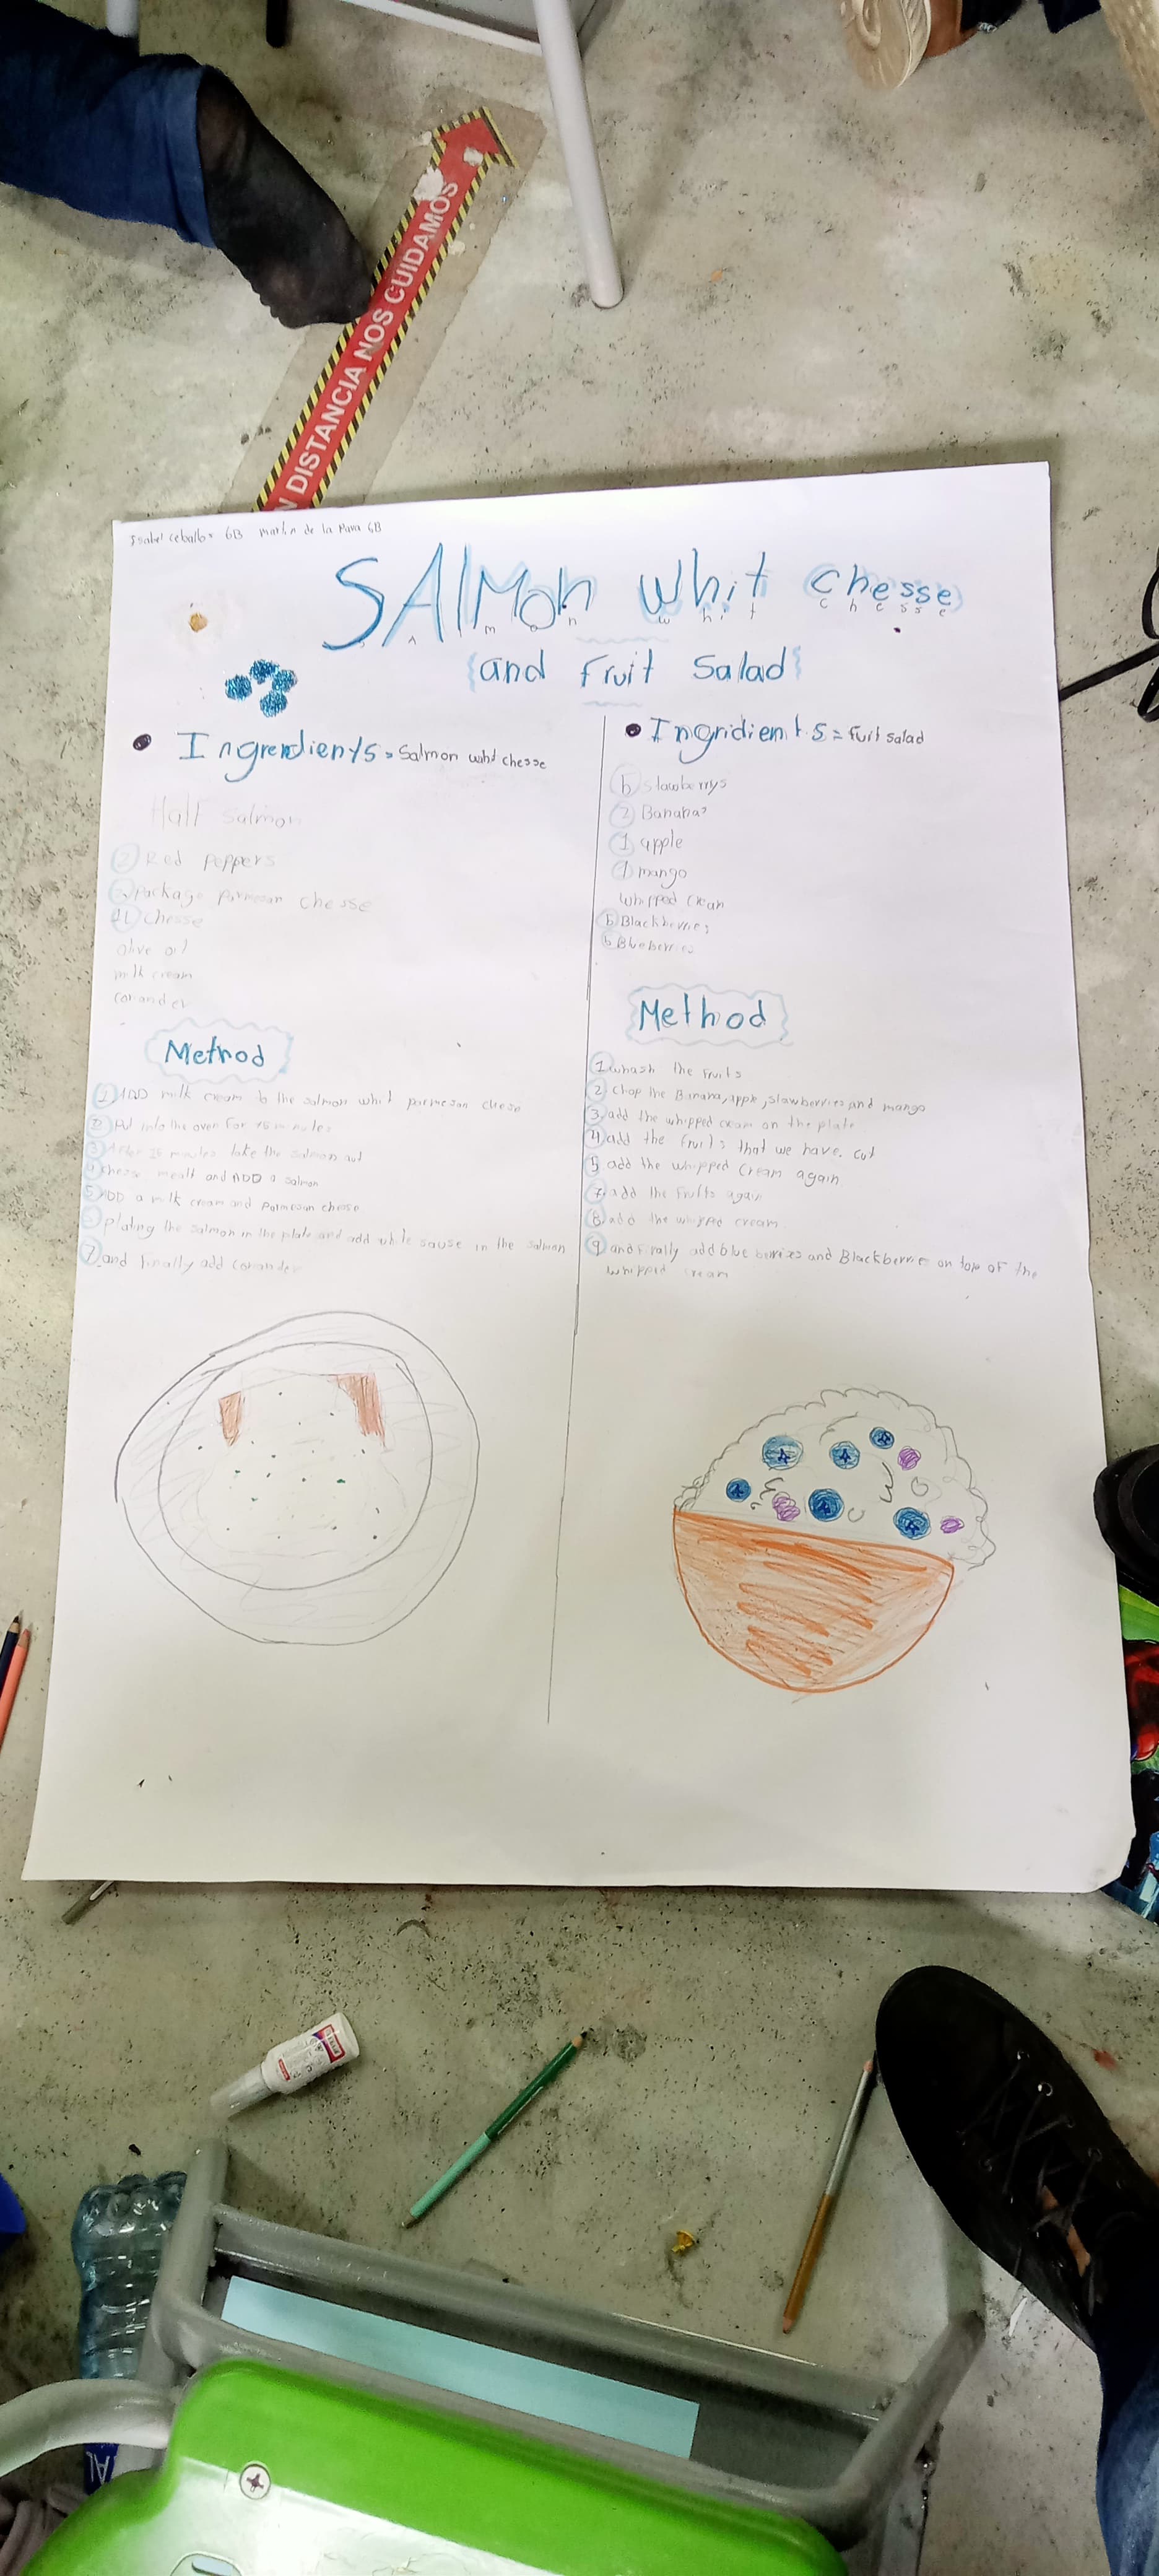 N DISTANCIA NOS CUIDAMOS
Isabel Ceballos 6B martin de la Pava 6B
SAlMon whit chesse
m o n w h i t c h e s s e
and fruit Salad
Ingrendients = Salmon whit chesse
Half Salmon
2 Red Peppers
Package Parmesan chesse
chesse
olive oil
milk cream
coriander
Method
1 ADD milk cream to the salmon whit parmesan chesse
2 Put into the oven for 15 minutes
3 After 15 minutes take the salmon out
4 chesse mealt and ADD a salmon
5 ADD a milk cream and Parmesan chesse
6 plating the salmon in the plate and add white sause in the salmon
7 and finally add coriander
Ingridients = fuit salad
6 stawberrys
2 Bananas
1 apple
1 mango
whipped cream
6 Blackberries
6 Blueberries
Method
1 whash the fruits
2 chop the Banana, apple, stawberries and mango
3 add the whipped cream on the plate
4 add the fruits that we have cut
5 add the whipped cream again
7 add the fruits again
8 add the whipped cream
9 and finally add blue berries and Blackberrie on top of the
whipped cream